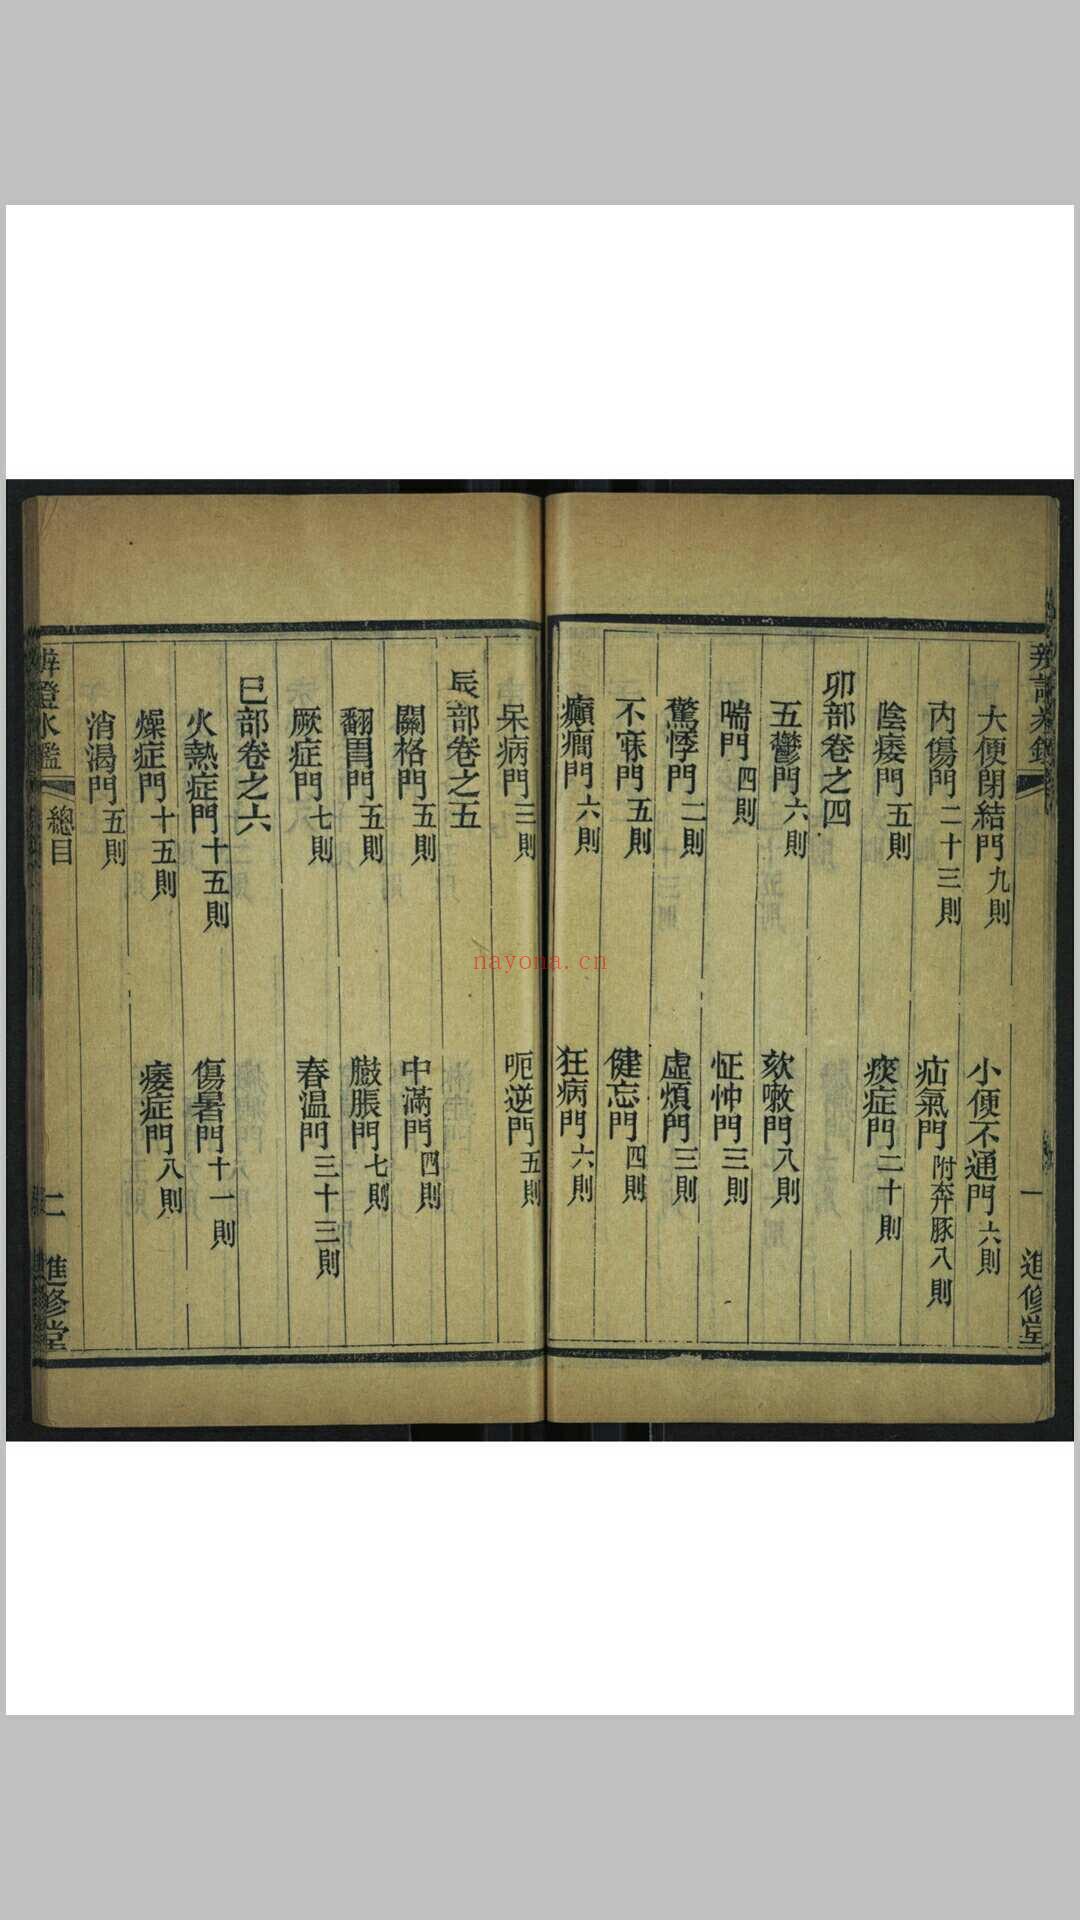 大便閉結門九則　小便不通門六則
内傷門二十三則　疝氣門附奔豚八則
陰痿門五則　痰症門二十則
卯部卷之四
五鬱門六則　欬嗽門八則
喘門四則　怔忡門三則
驚悸門二則　虛煩門三則
不寐門五則　健忘門四則
癲癇門六則　狂病門六則
呆病門三則　呃逆門五則
辰部卷之五
關格門五則　中滿門四則
翻胃門五則　臌脹門七則
厥症門七則　春温門三十三則
巳部卷之六
火熱症門十五則　傷暑門十一則
燥症門十五則　痿症門八則
消渴門五則
辨證氷鑑　總目　二　進修堂
一　進修堂
nayona.cn